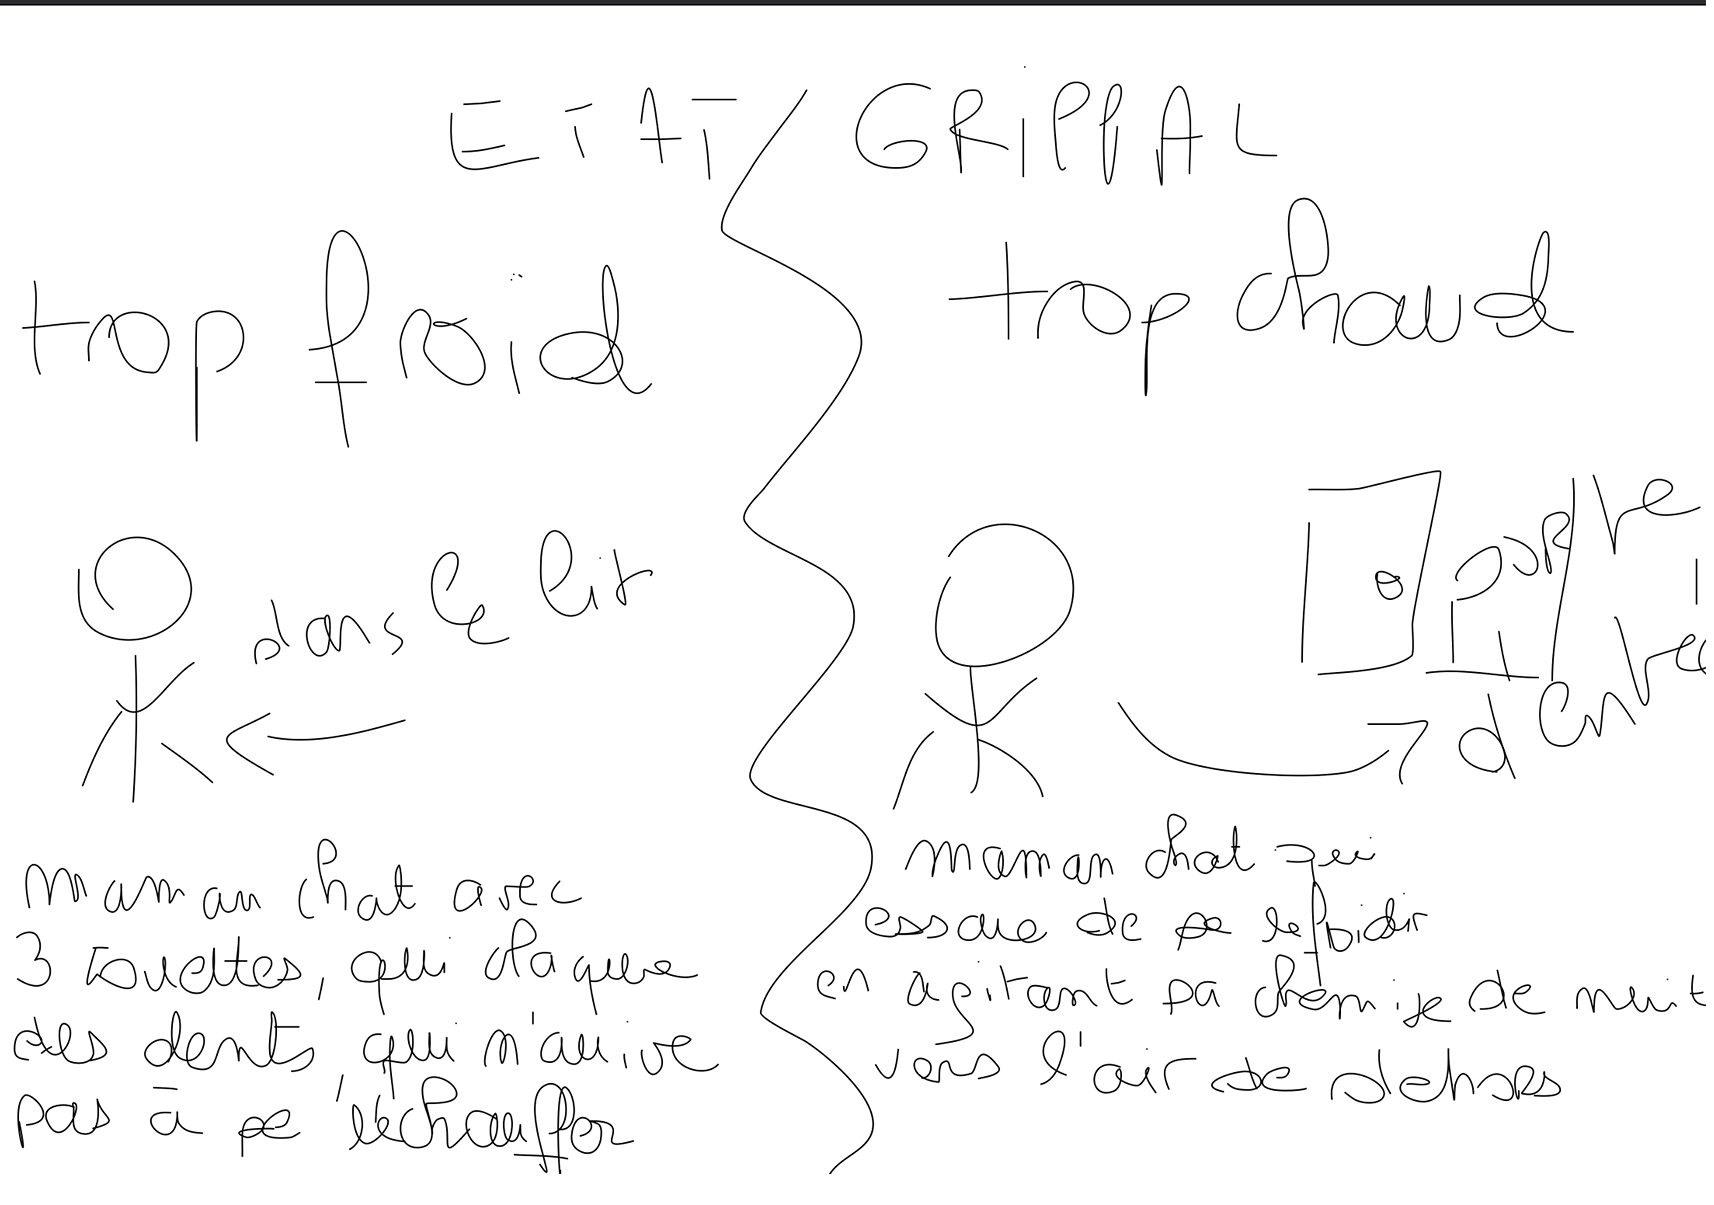 ETAT GRIPPAL
trop froid
trop chaud
dans le lit
porte
d'entrée
maman chat avec
3 couettes, qui claque
des dents, qui n'arrive
pas à se réchauffer
maman chat qui
essaie de se refroidir
en agitant sa chemise de nuit
vers l'air de dehors